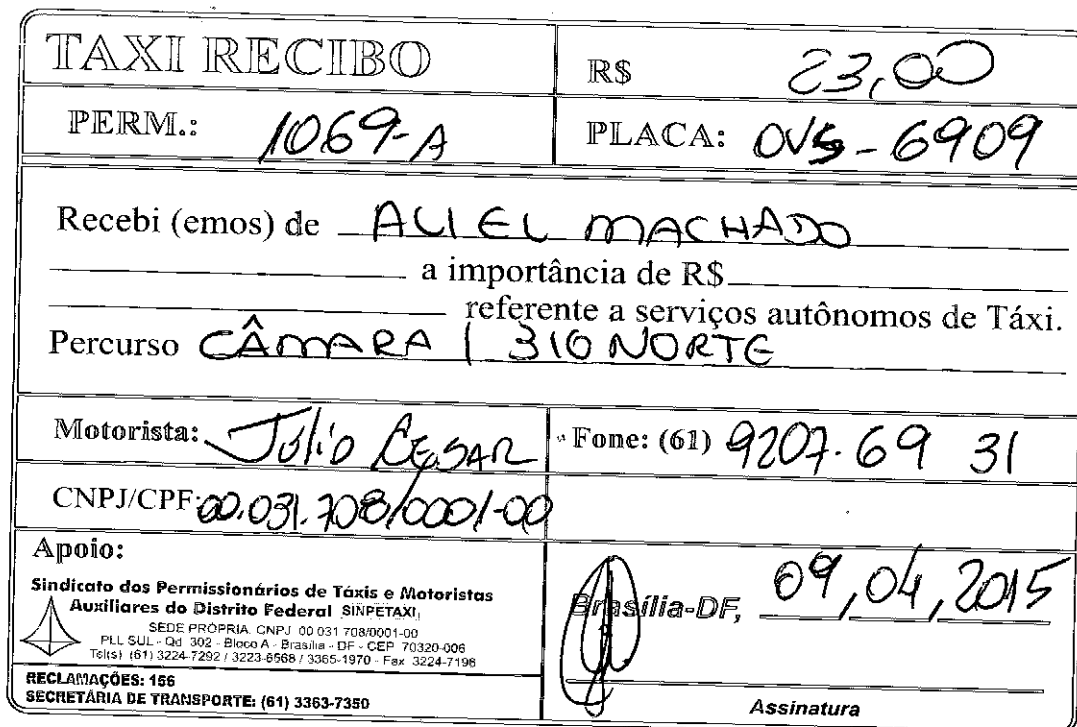 TAXI RECIBO
R$ 23,00
PERM.: 1069-A
PLACA: OVS-6909
Recebi (emos) de ALIEL MACHADO
a importância de R$
referente a serviços autônomos de Táxi.
Percurso CÂMARA | 310 NORTE
Motorista: Júlio CESAR
Fone: (61) 9207.69 31
CNPJ/CPF: 00.031.708/0001-00
Apoio:
Sindicato dos Permissionários de Táxis e Motoristas
Auxiliares do Distrito Federal SINPETAXI
SEDE PRÓPRIA. CNPJ 00 031 708/0001-00
PLL SUL - Qd 302 - Bloco A - Brasília - DF - CEP 70320-006
Tel(s) (61) 3224-7292 / 3223-6568 / 3365-1970 - Fax 3224-7196
RECLAMAÇÕES: 156
SECRETÁRIA DE TRANSPORTE: (61) 3363-7350
Brasília-DF, 09,04,2015
Assinatura